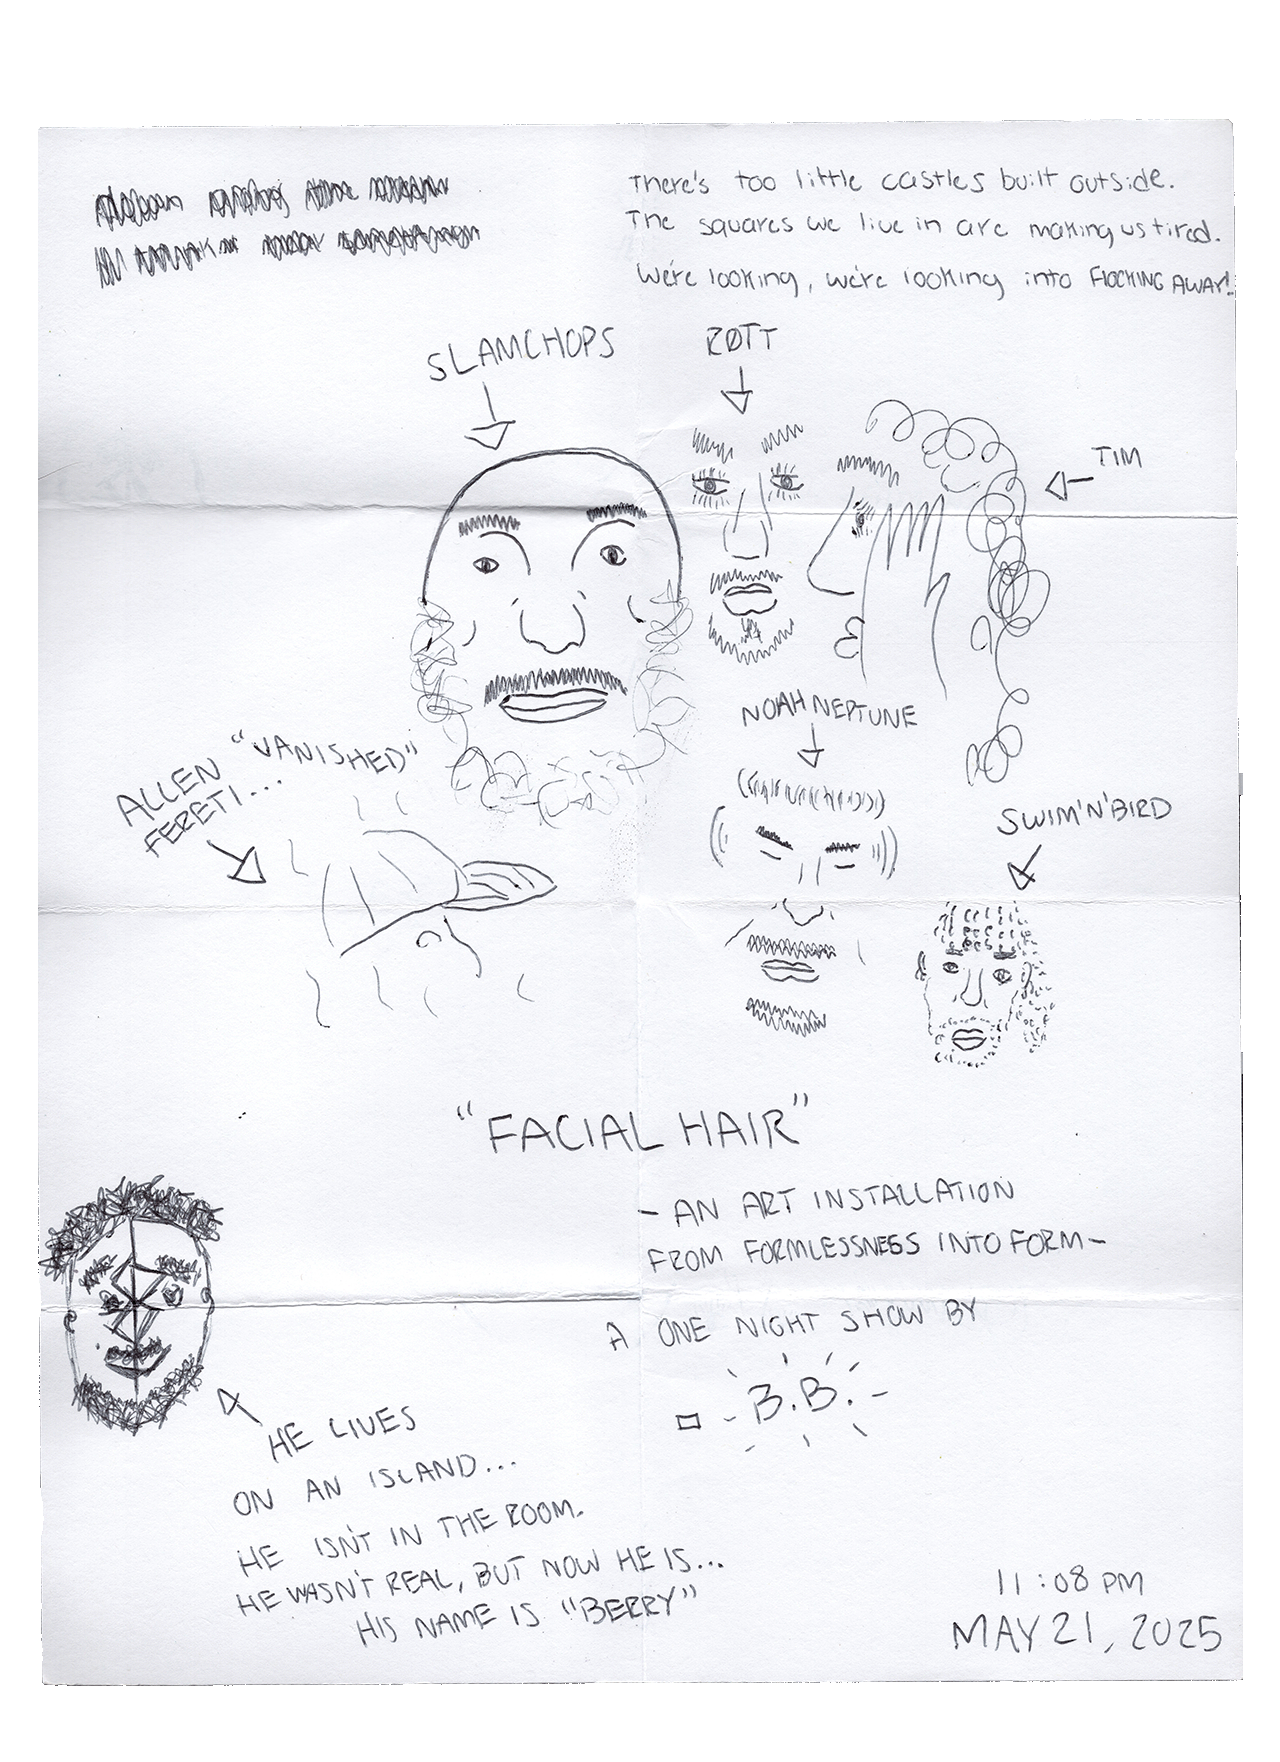 There's too little castles built outside.
The squares we live in are making us tired.
We're looking, we're looking into FLOCKING AWAY!
SLAMCHOPS
RØTT
TIM
NOAH NEPTUNE
ALLEN "VANISHED"
FERETI...
SWIM'N'BIRD
"FACIAL HAIR"
- AN ART INSTALLATION
FROM FORMLESSNESS INTO FORM -
A ONE NIGHT SHOW BY
B.B.
HE LIVES
ON AN ISLAND...
HE ISN'T IN THE ROOM.
HE WASN'T REAL, BUT NOW HE IS...
HIS NAME IS "BERRY"
11:08 PM
MAY 21, 2025